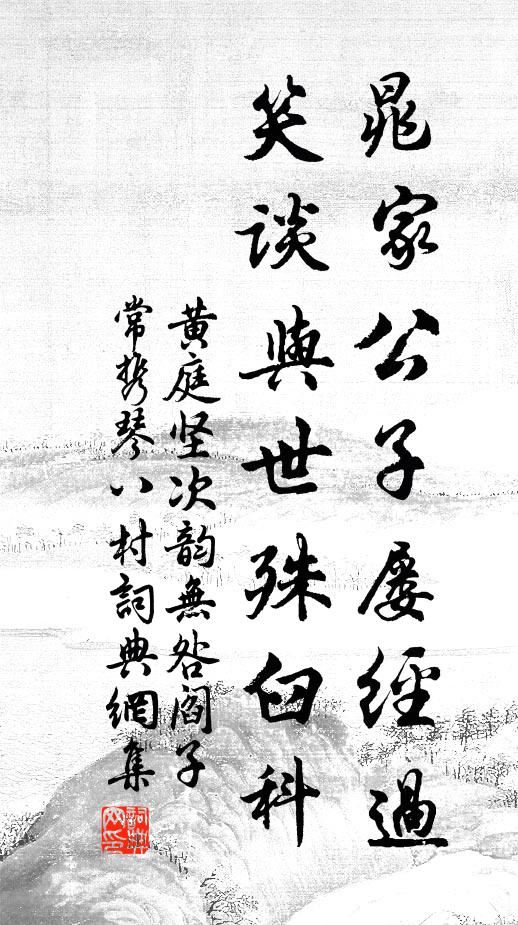 晁家公子屡經過
笑談與世殊臼科
黄庭坚次韵無咎閻子
常携琴入村詞典網集